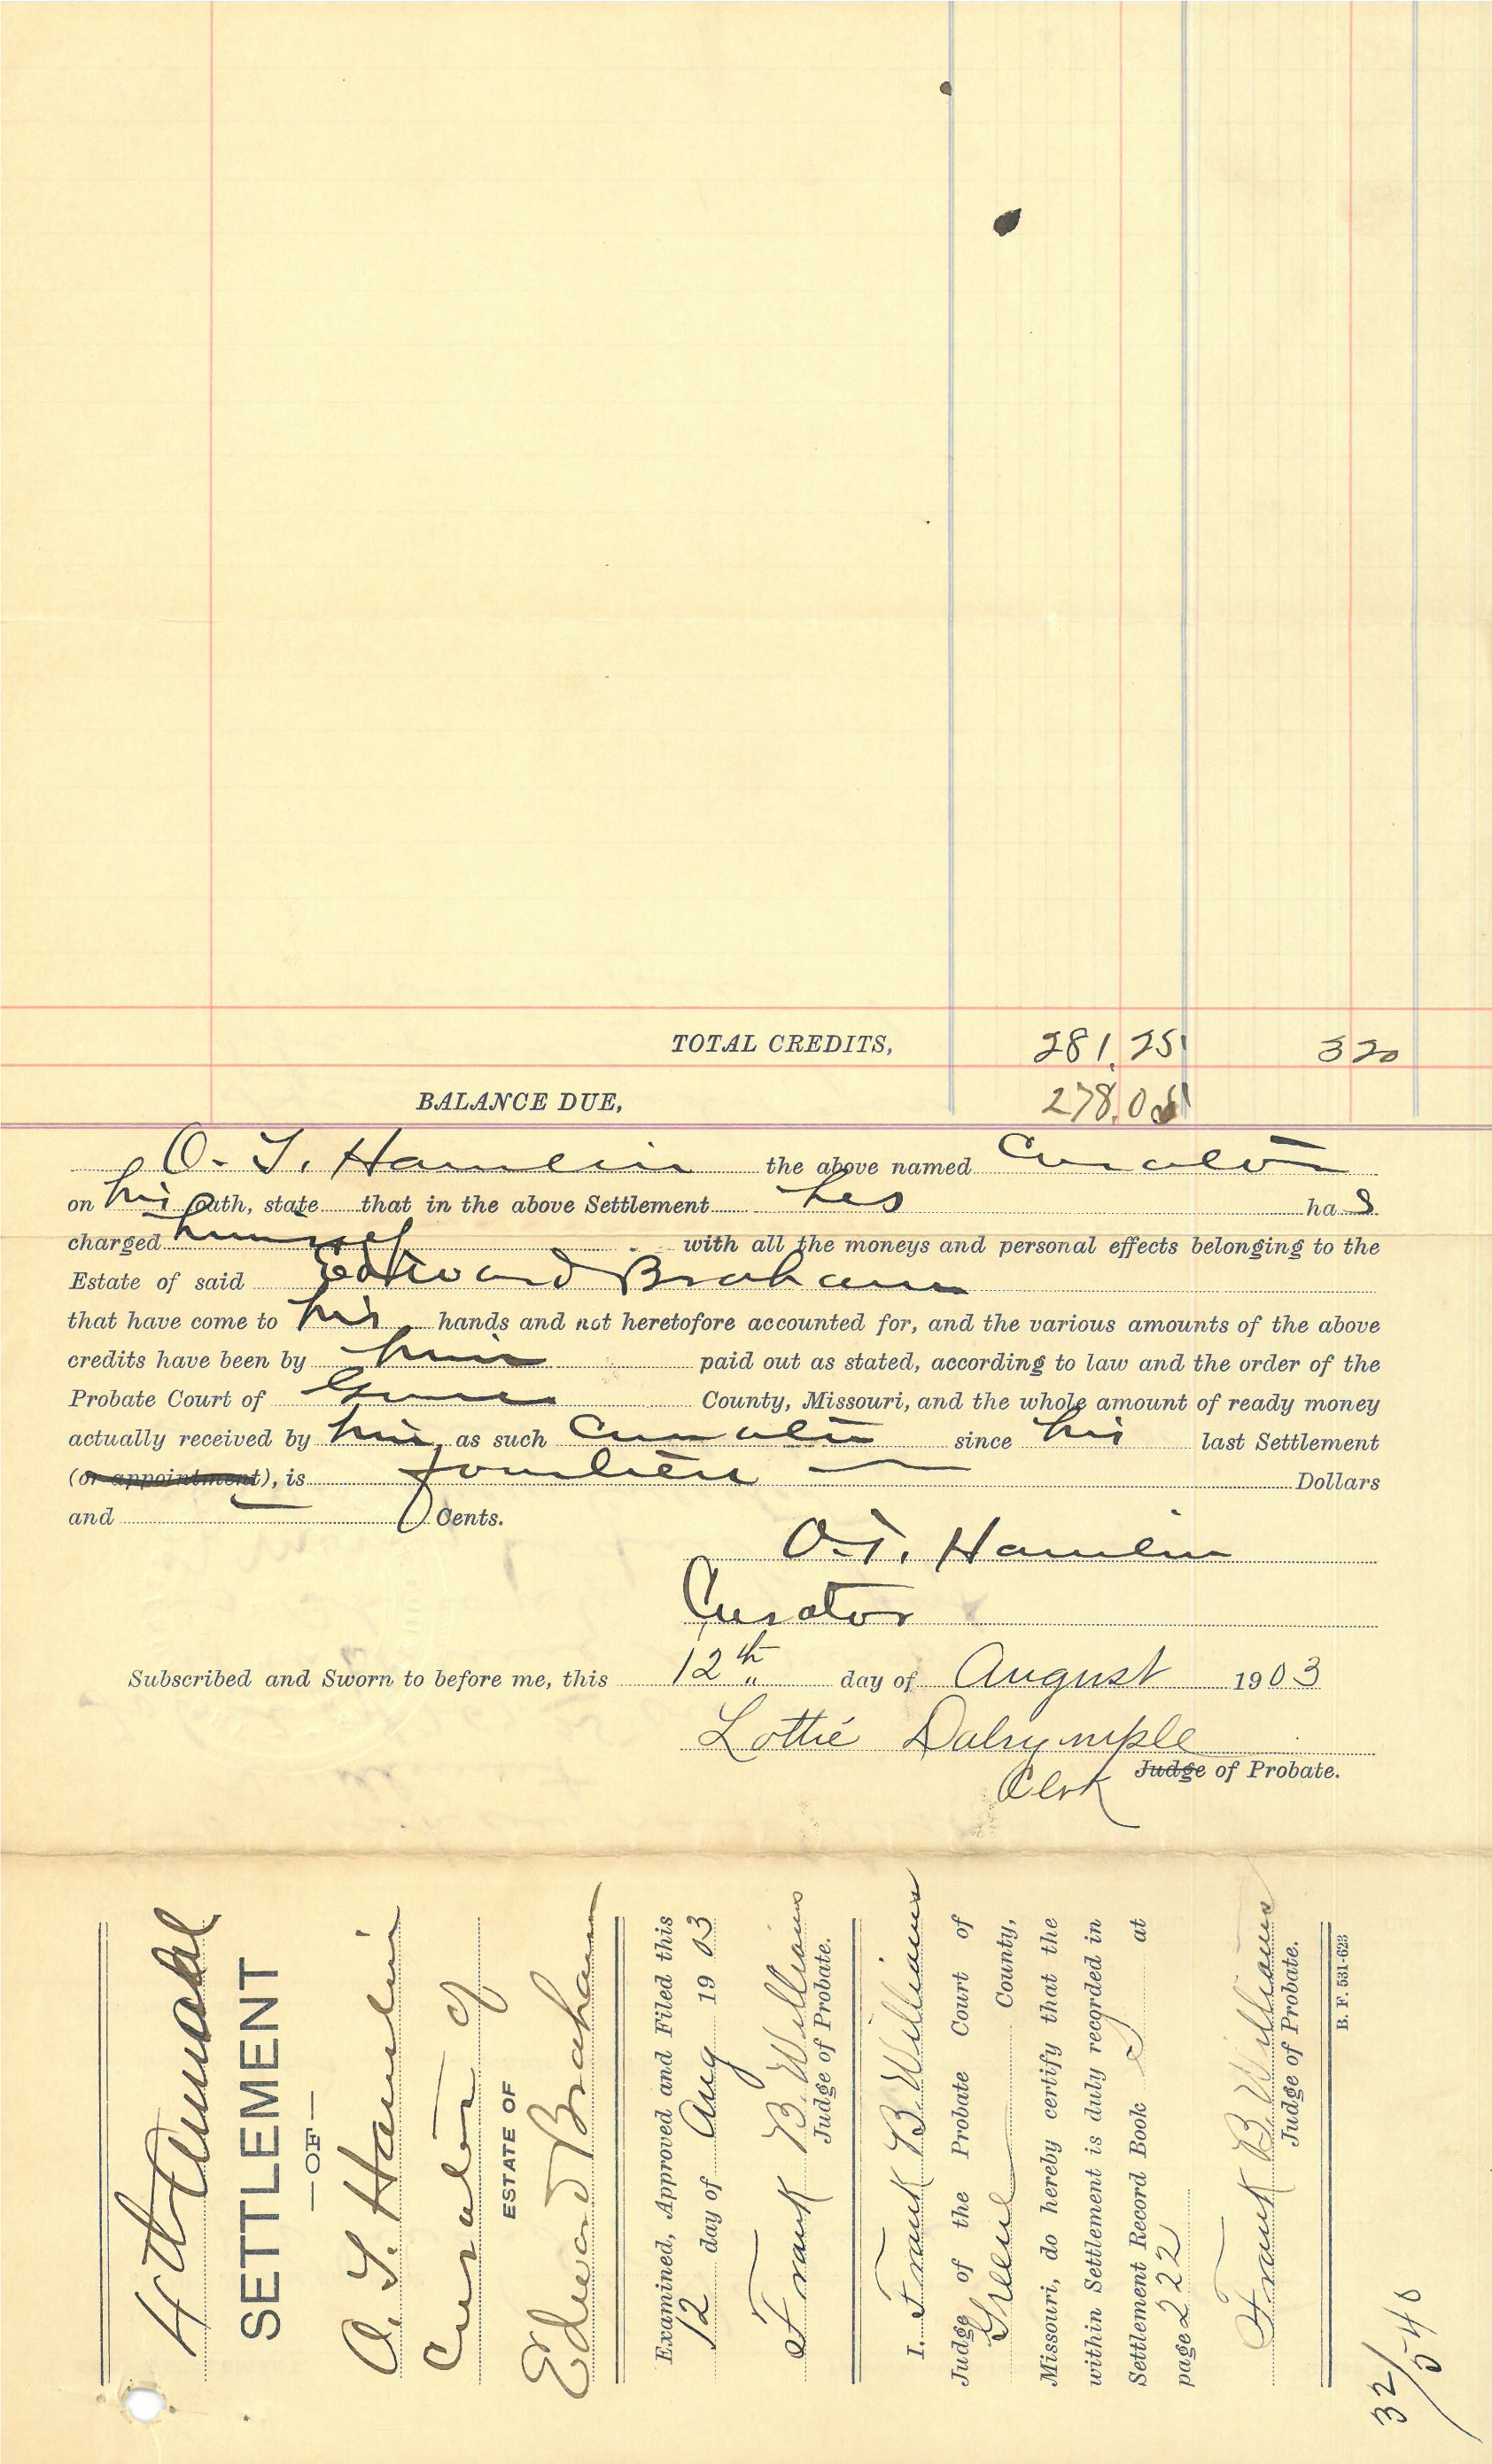 TOTAL CREDITS, 281.25 320
BALANCE DUE, 278.05
O. T. Hamlin the above named Curator
on his oath, state that in the above Settlement he ha s
charged himself with all the moneys and personal effects belonging to the
Estate of said Edward Braham
that have come to his hands and not heretofore accounted for, and the various amounts of the above
credits have been by him paid out as stated, according to law and the order of the
Probate Court of Greene County, Missouri, and the whole amount of ready money
actually received by him as such Curator since his last Settlement
(or appointment), is fourteen Dollars
and Cents.
O. T. Hamlin
Curator
Subscribed and Sworn to before me, this 12th day of August 1903
Lottie Dalrymple
Clerk Judge of Probate.
4th Annual
SETTLEMENT
—OF—
O. T. Hamlin
Curator of
ESTATE OF
Edward Braham
Examined, Approved and Filed this
12 day of Aug 1903
Frank B. Williams
Judge of Probate.
I, Frank B. Williams
Judge of the Probate Court of
Greene County,
Missouri, do hereby certify that the
within Settlement is duly recorded in
Settlement Record Book S at
page 222
Frank B. Williams
Judge of Probate.
B. F. 531-623
32/540